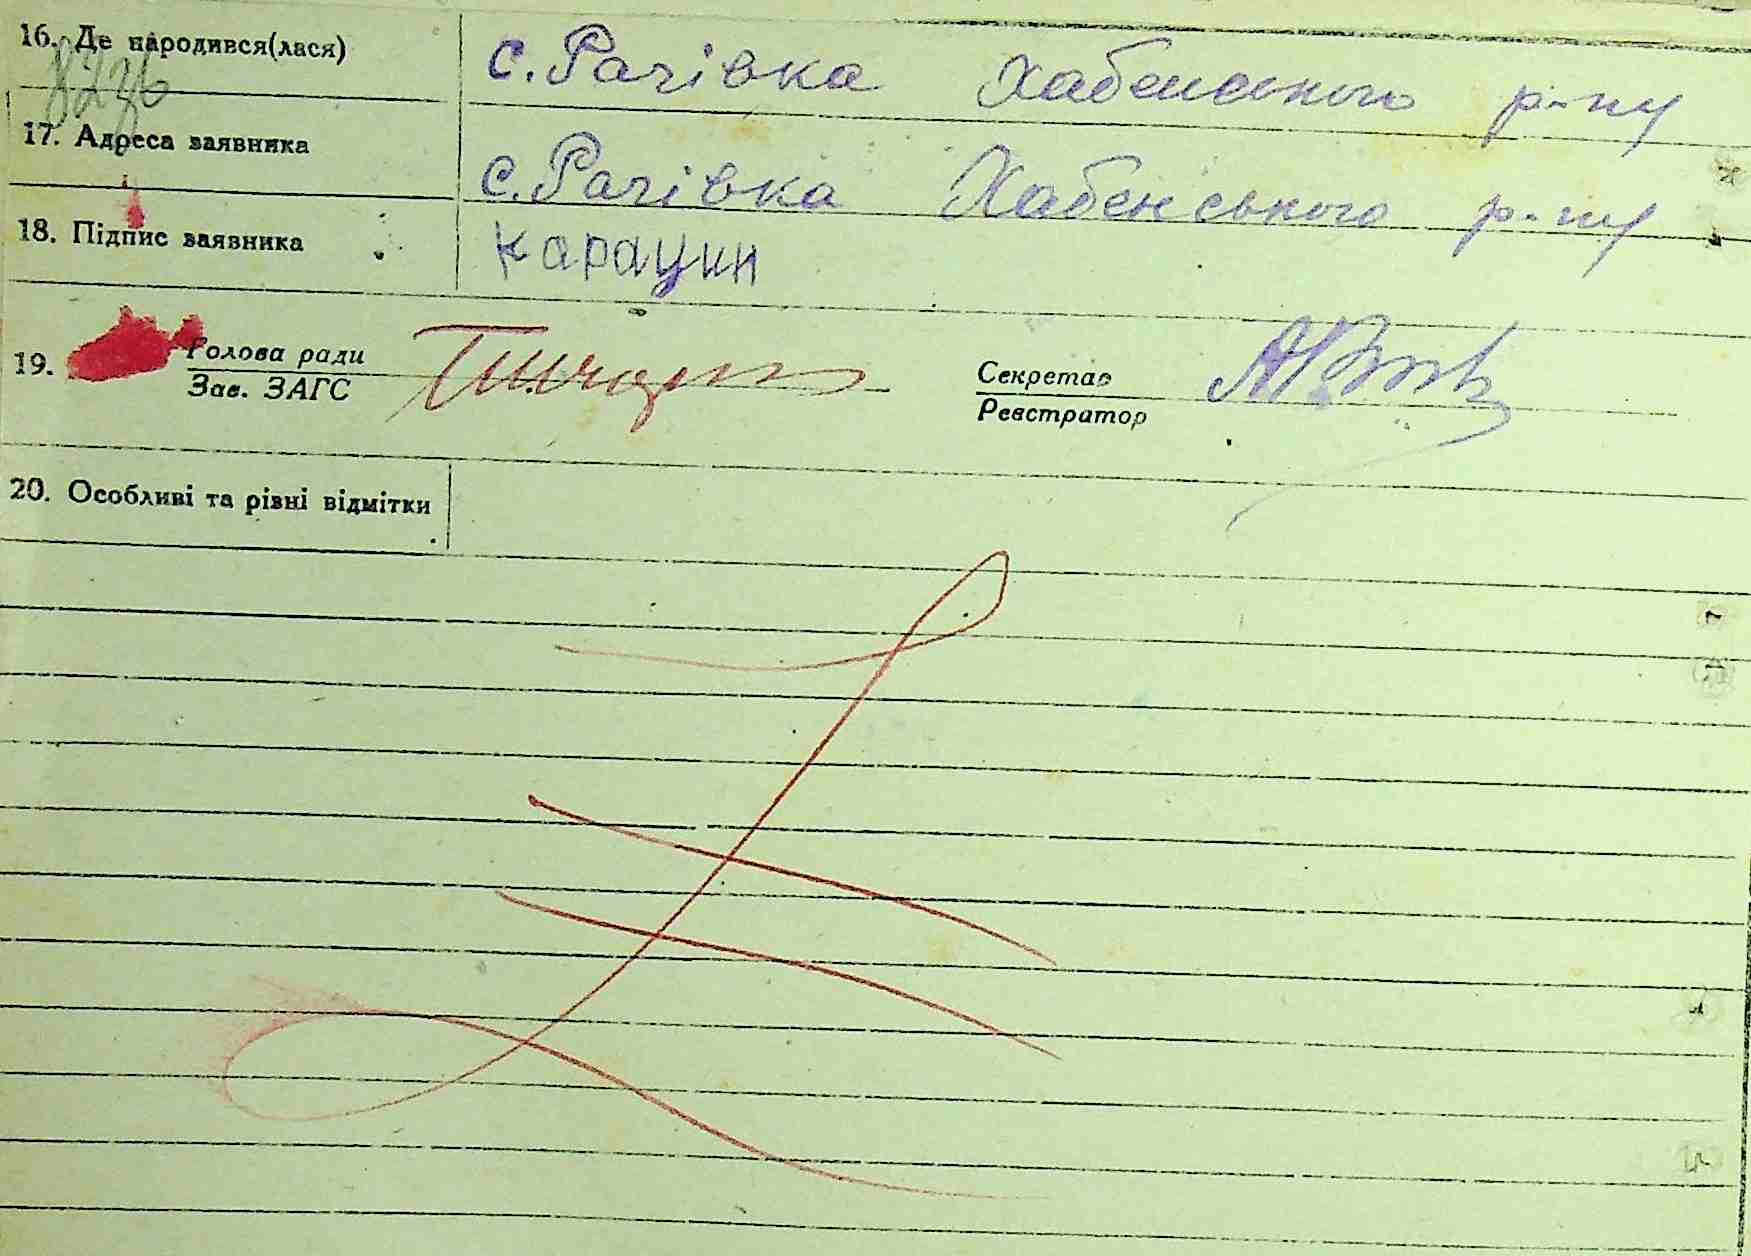 16. Де народився(лася) с. Рачівка Хабенського р-ну
17. Адреса заявника с. Рачівка Хабенського р-ну
18. Підпис заявника Карацин
19. Голова ради Секретар
Зав. ЗАГС Реєстратор
20. Особливі та різні відмітки